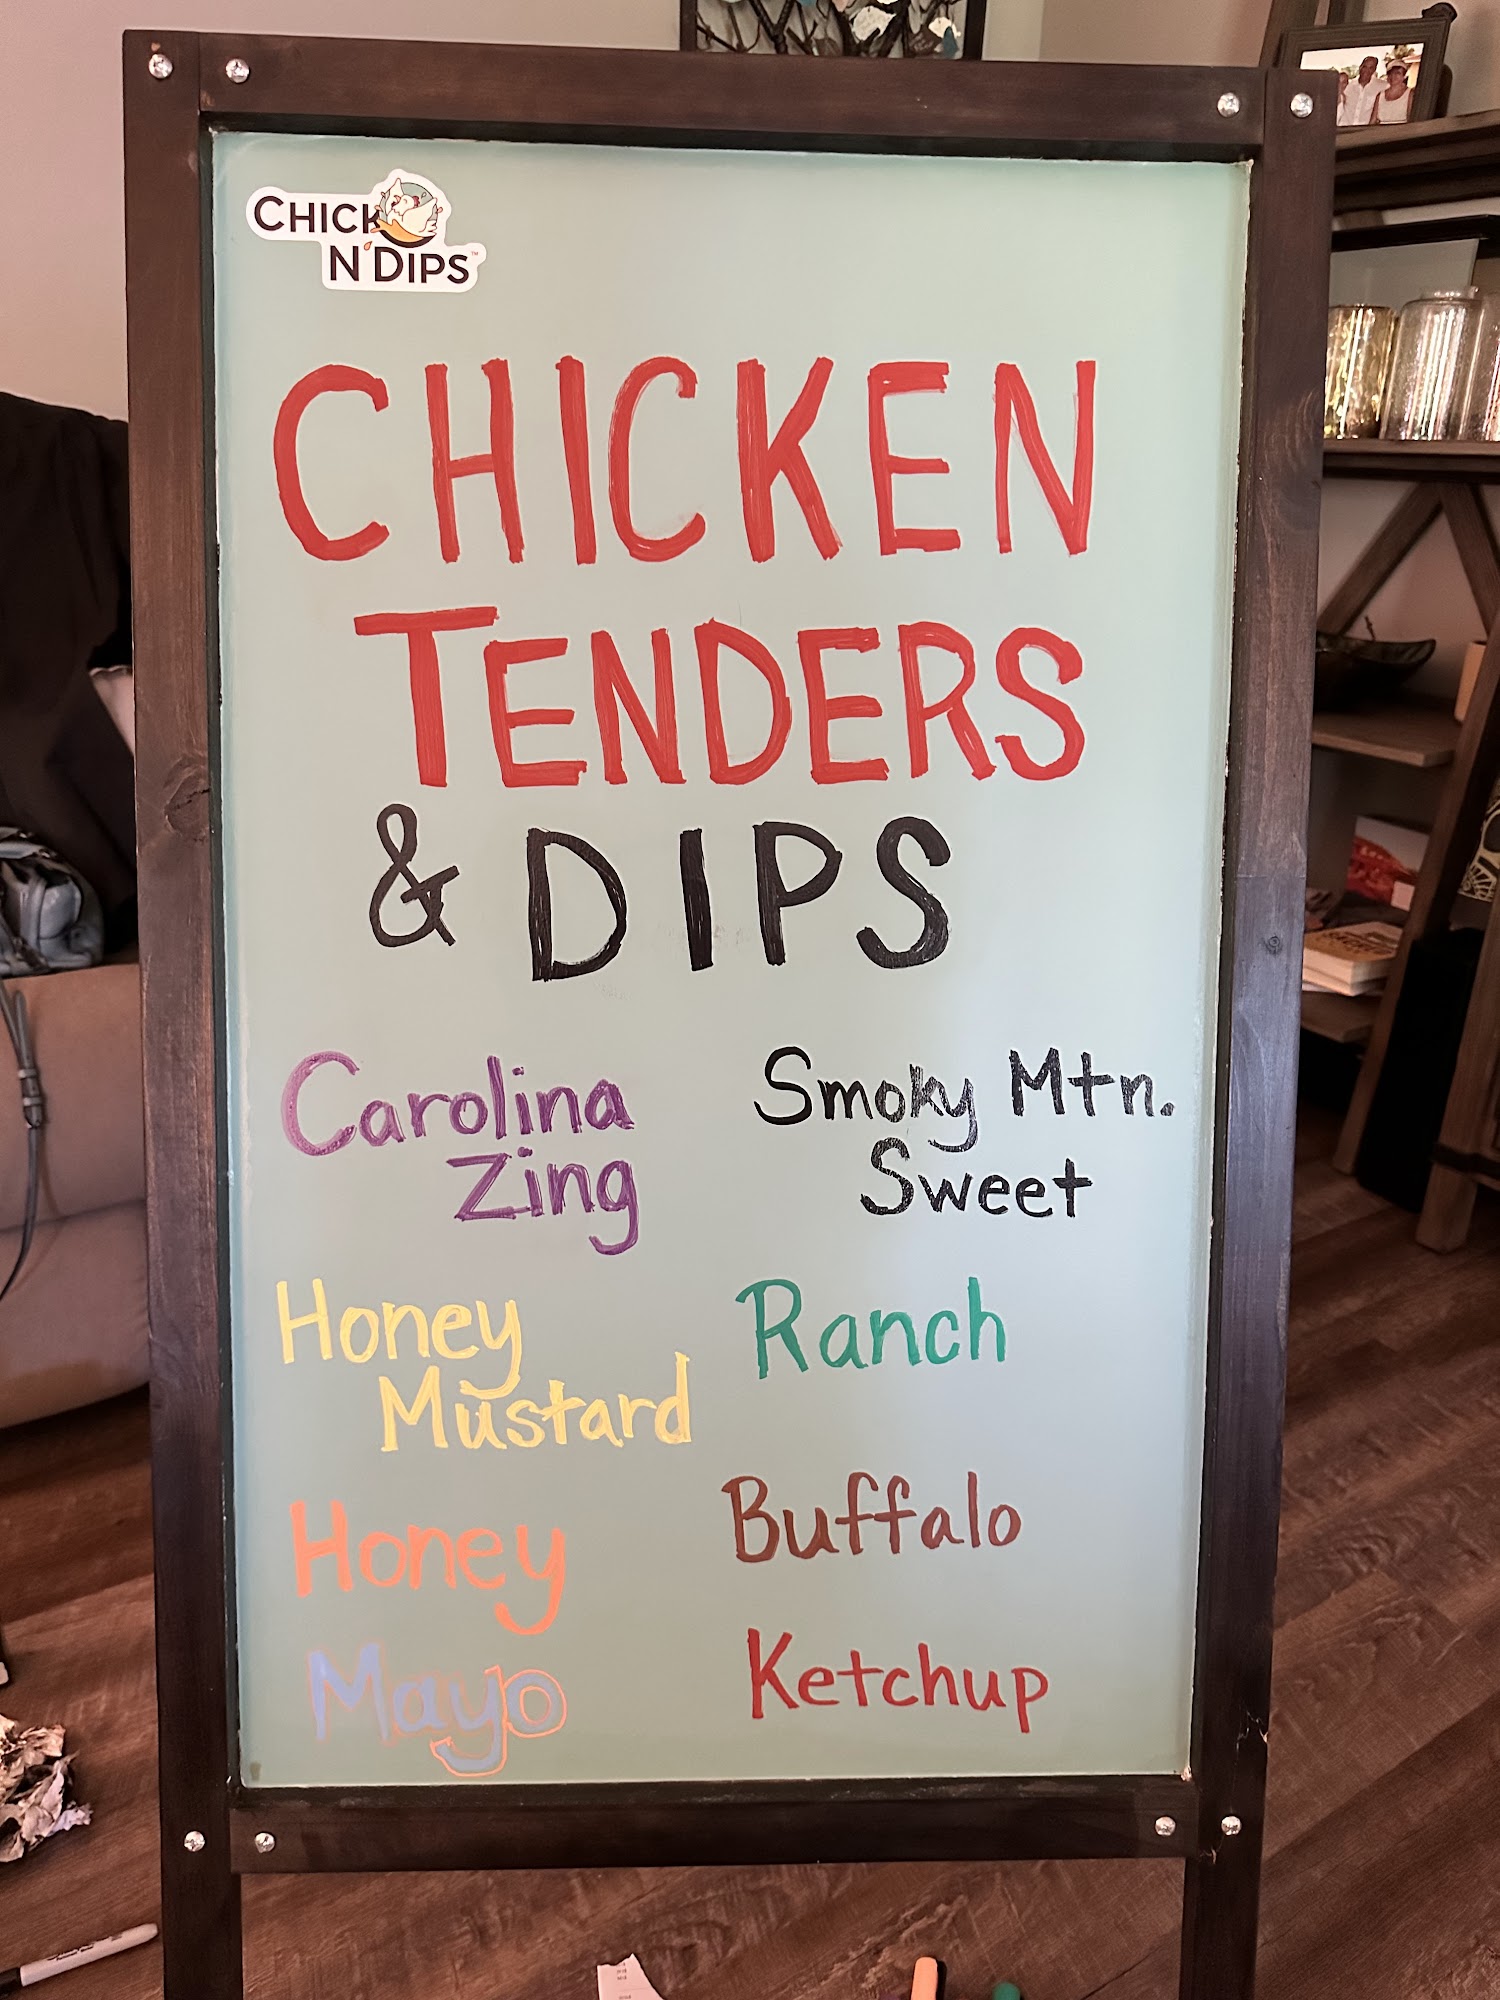 CHICK
N' DIPS™
CHICKEN
TENDERS
& DIPS
Carolina
Zing
Smoky Mtn.
Sweet
Honey
Mustard
Ranch
Honey
Buffalo
Mayo
Ketchup